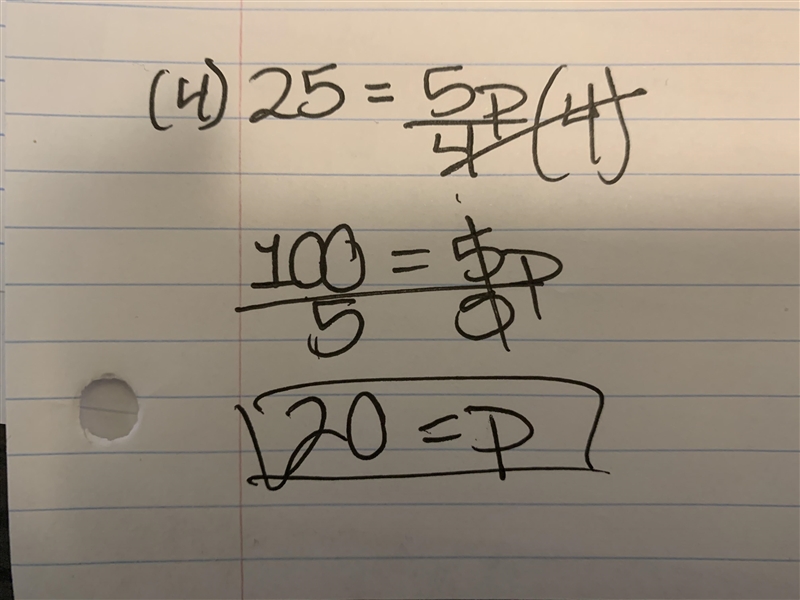 (4) 25 = 5p/4 (4)
100/5 = 5p/5
20 = p